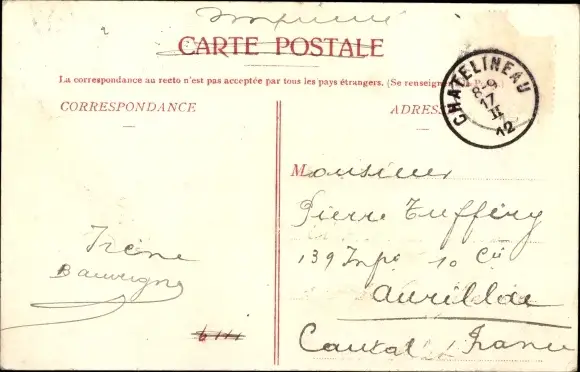 Imprimé
CARTE POSTALE
La correspondance au recto n'est pas acceptée par tous les pays étrangers. (Se renseign
CORRESPONDANCE
ADRESS
CHATELINEAU
8-9
17
II
12
Monsieur
Pierre Tuffery
139 Inf^ie 10 C^ie
Aurillac
Cantal France
Irène